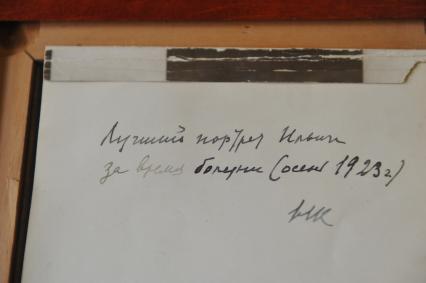 Лучший портрет Ильича
за время болезни (осень 1923 г)
НК